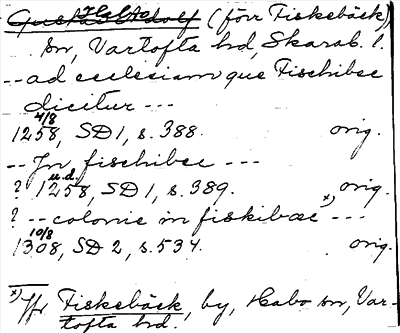 Habo
Gustav Adolf (förr Fiskebäck)
sn, Vartofta hd, Skarab. l.
-- ad ecclesiam que Fischibec
dicitur ---
4/8
1258, SD 1, s. 388. orig.
-- In fischibec ---
u.d.
? 1258, SD 1, s. 389. orig.
? -- colonie in fiskibæc x) ---
10/8
1308, SD 2, s. 534. orig.
x) Jfr Fiskebäck, by, Habo sn, Var-
tofta hd.